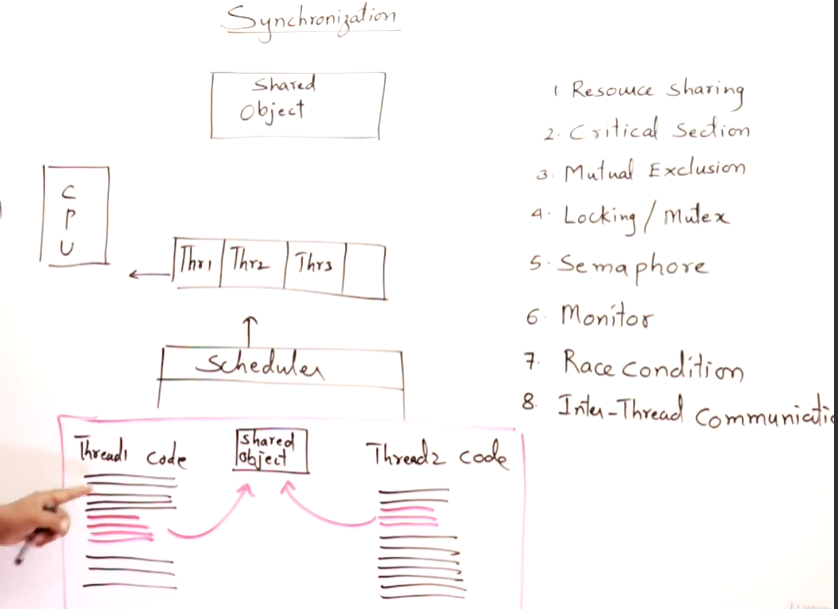 Synchronization
Shared
Object
C
P
U
Thr1 Thr2 Thr3
Scheduler
Thread1 code
Shared
Object
Thread2 code
1. Resource sharing
2. Critical Section
3. Mutual Exclusion
4. Locking/Mutex
5. Semaphore
6. Monitor
7. Race condition
8. Inter-Thread Communicatio